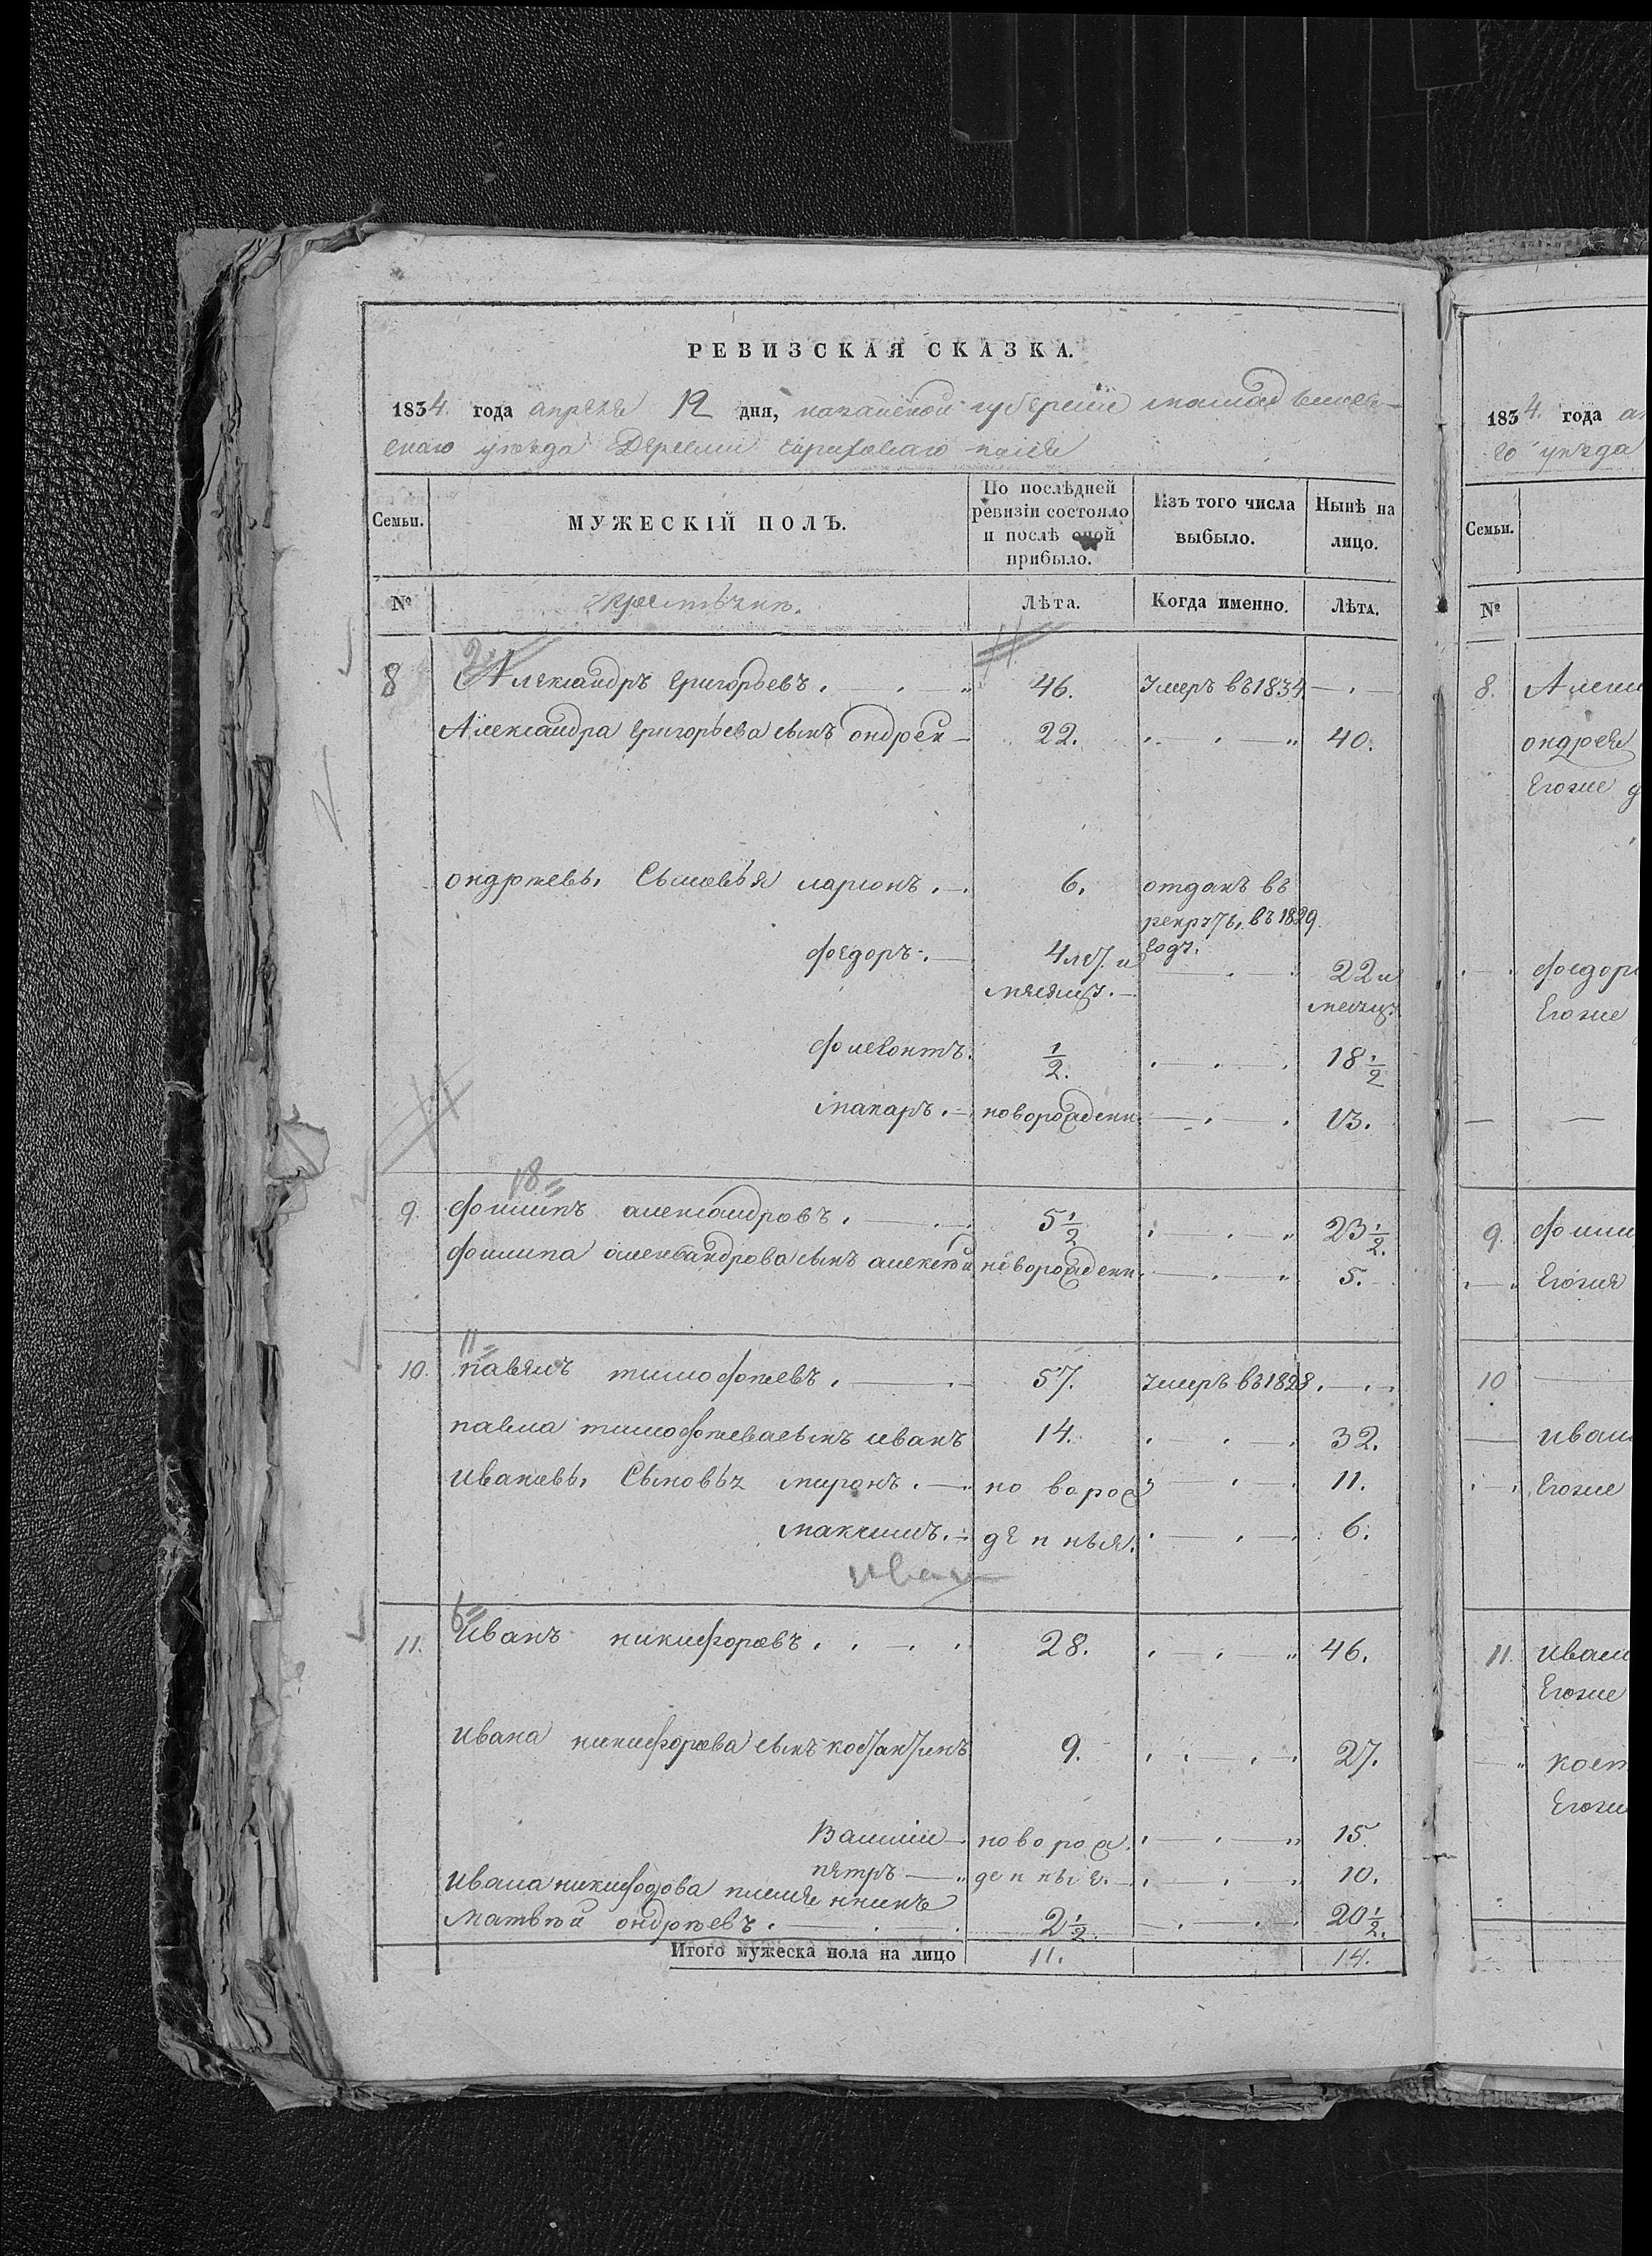 РЕВИЗСКАЯ СКАЗКА.
1834. года апреля 12 дня, казанской губернии
скаго уезда Деревни
Семьи. МУЖЕСКІЙ ПОЛЪ. По послѣдней ревизіи состояло и послѣ оной прибыло. Изъ того числа выбыло. Нынѣ на лицо.
№ Лѣта. Когда именно. Лѣта.
8 2. Александръ григорьевъ. 46. умеръ въ 1834
Александра григорьева сынъ ондреи 22. 40.
ондрѣевы сыновья ларионъ. 6. отданъ въ
рекруты въ 1829
годъ.
федоръ. 4 лѣт. и 22 и
месяцъ. месяцъ
филконтъ. 1/2. 18 1/2
макаръ. новорожденн. 13.
18
9. филипъ александровъ. 5 1/2 23 1/2.
филипа александрова сынъ алексѣй новорожденн. 5.
11
10. павелъ тимофѣевъ. 57. умеръ въ 1828.
павла тимофѣева сынъ иванъ 14. 32.
ивановы сыновья миронъ. новорож 11.
максимъ. денныя. 6.
иван
6
11. иванъ никифоровъ. 28. 46.
ивана никифорова сынъ костантинъ 9. 27.
василий новорож. 15.
петръ денныя. 10.
ивана никифорова племянникъ
матвѣй ондрѣевъ. 2 1/2. 20 1/2.
Итого мужеска пола на лицо 11. 14.
1834. года
го уезда
Семьи.
№
8.
ондрея
Егоже
Егоже
9.
10
Егоже
11.
Егоже